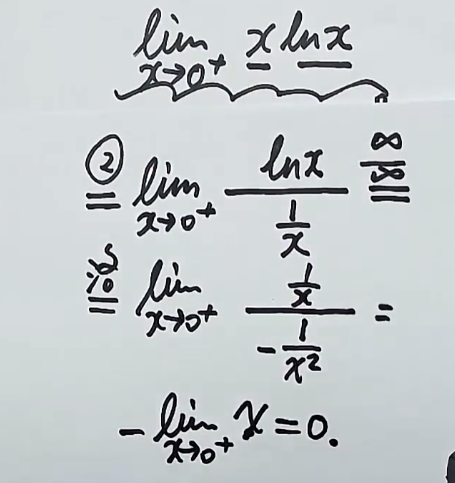 lim x→0⁺ x ln x
② = lim x→0⁺ ln x / (1/x) ∞/∞ =
= lim x→0⁺ (1/x) / (-1/x²) =
- lim x→0⁺ x = 0.